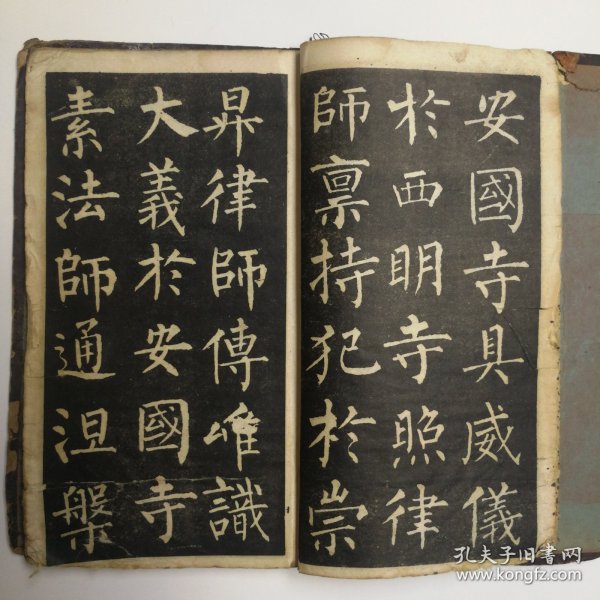 安國寺具威儀
於西明寺照律
師禀持犯於崇
昇律師傳唯識
大義於安國寺
素法師通涅槃
孔夫子旧書网
www.kongfz.com